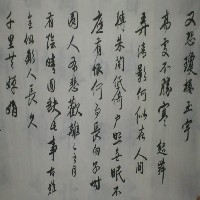 又恐瓊樓玉宇
高處不勝寒起舞
弄清影何似在人間
轉朱閣低綺戶照無眠不
應有恨何事長向別時
圓人有悲歡離合月
有陰晴圓缺此事古難
全但願人長久
千里共嬋娟